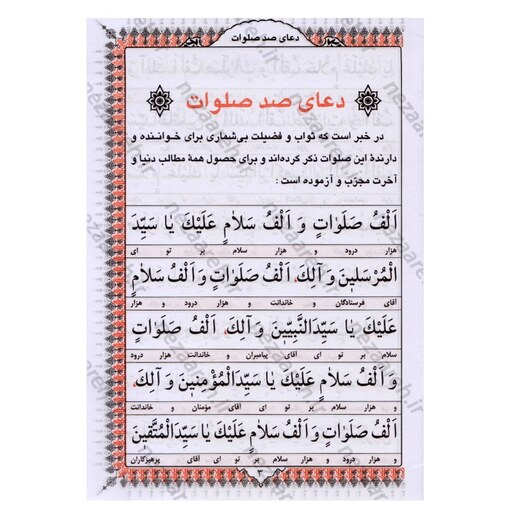 دعای صد صلوات
دعای صد صلوات
در خبر است که ثواب و فضیلت بی‌شماری برای خواننده و
دارندهٔ این صلوات ذکر کرده‌اند و برای حصول همهٔ مطالب دنیا و
آخرت مجرّب و آزموده است :
اَلْفُ صَلَوٰاتٍ وَ اَلْفُ سَلاٰمٍ عَلَيْكَ يٰا سَيِّدَ
هزار درود و هزار سلام بر تو ای
الْمُرْسَلينَ وَ آلِكَ، اَلْفُ صَلَوٰاتٍ وَ اَلْفُ سَلاٰمٍ
آقای فرستادگان و خاندانت و هزار درود و هزار
عَلَيْكَ يٰا سَيِّدَ النَّبِيّينَ وَ آلِكَ، اَلْفُ صَلَوٰاتٍ
سلام بر تو ای آقای پیامبران و خاندانت هزار درود
وَ اَلْفُ سَلاٰمٍ عَلَيْكَ يٰا سَيِّدَ الْمُؤْمِنينَ وَ آلِكَ،
و هزار سلام بر تو ای آقای مؤمنان و خاندانت
اَلْفُ صَلَوٰاتٍ وَ اَلْفُ سَلاٰمٍ عَلَيْكَ يٰا سَيِّدَ الْمُتَّقينَ
و هزار درود و هزار سلام بر تو ای آقای پرهیزکاران
۳
nezaareh.ir